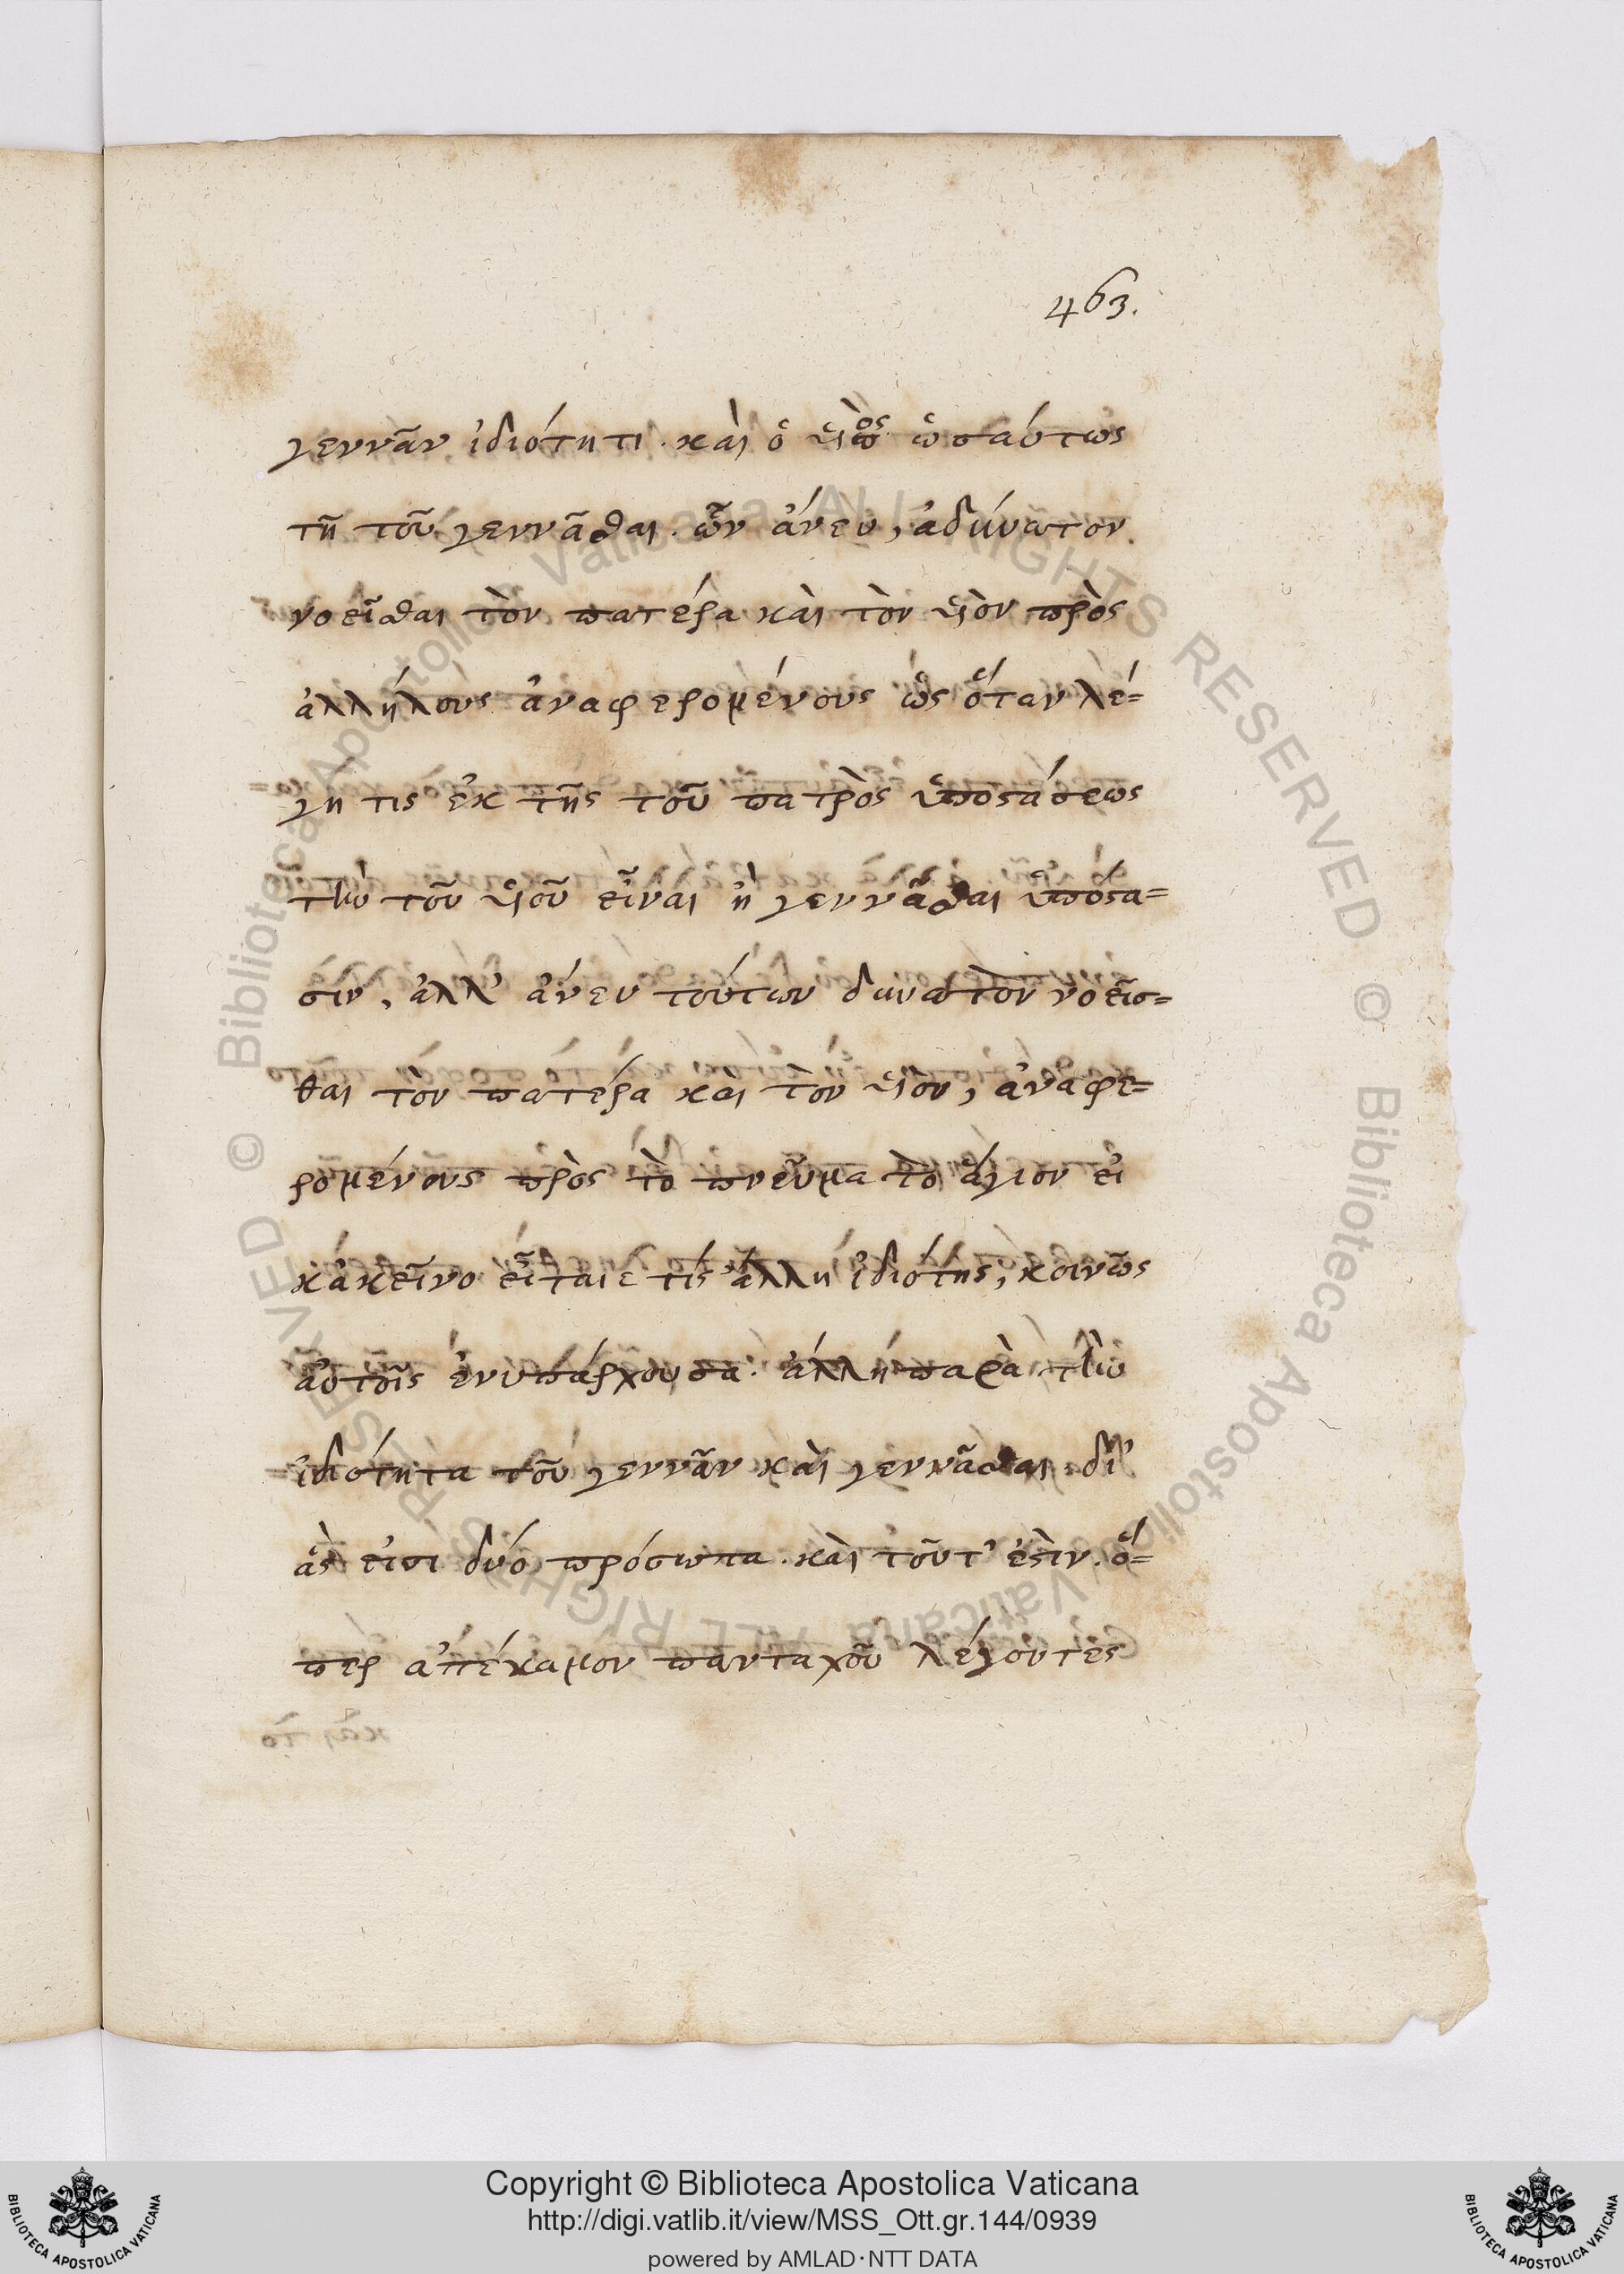 463.
γεννᾶν ἰδιότητι. καὶ ὁ ὑιὸς ὡσαύτως
τῆ τοῦ γεννᾶσθαι. ὧν ἄνευ, ἀδύνατον
νοεῖσθαι τὸν πατέρα καὶ τὸν ὑιὸν πρὸς
ἀλλήλους ἀναφερομένους ὡς ὅταν λέ=
γη τις ἐκ τῆς τοῦ πατρὸς ὑποστάσεως
τὴν τοῦ ὑιοῦ εἶναι ἢ γεννᾶσθαι ὑπόστα=
σιν, ἀλλ' ἄνευ τούτων δυνατὸν νοεῖσ=
θαι τὸν πατέρα καὶ τὸν ὑιὸν, ἀναφε=
ρομένους πρὸς τὸ πνεῦμα τὸ ἅγιον εἰ
κἀκεῖνο εἶται ε τίς ἄλλη ἰδιότης, κοινῶς
αὐτοῖς ἐνυπάρχουσα. ἄλλη παρὰ τὴν
ἰδιότητα τοῦ γεννᾶν καὶ γεννᾶσθαι δι'
ἅς εἰσι δύο πρόσωπα. καὶ τοῦτ' ἐστὶν. ὅ=
περ ἀπέκαμον πανταχοῦ λέγοντες
Copyright © Biblioteca Apostolica Vaticana
http://digi.vatlib.it/view/MSS_Ott.gr.144/0939
powered by AMLAD·NTT DATA
BIBLIOTECA APOSTOLICA VATICANA
BIBLIOTECA APOSTOLICA VATICANA
© Biblioteca Apostolica Vaticana ALL RIGHTS RESERVED © Biblioteca Apostolica Vaticana ALL RIGHTS RESERVED